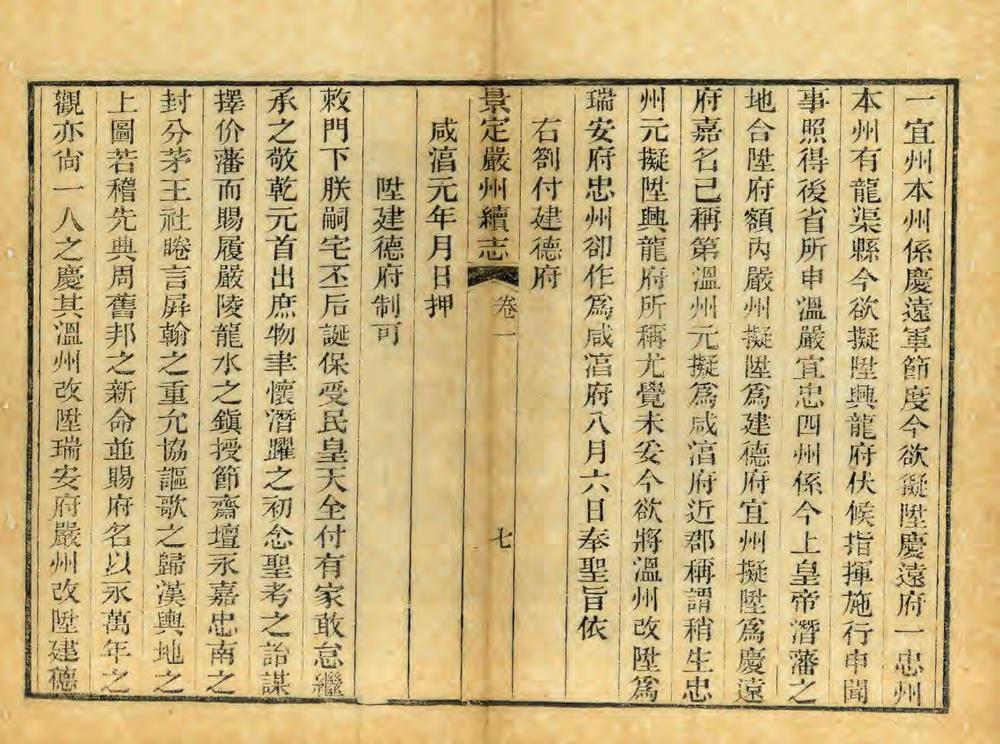 一宜州本州係慶遠軍節度今欲擬陞慶遠府一忠州
本州有龍渠縣今欲擬陞興龍府伏候指揮施行申聞
事照得後省所申溫嚴宜忠四州係今上皇帝潛藩之
地合陞府額內嚴州擬陞爲建德府宜州擬陞爲慶遠
府嘉名已稱第溫州元擬爲咸淳府近郡稱謂稍生忠
州元擬陞興龍府所稱尤覺未妥今欲將溫州改陞爲
瑞安府忠州卻作爲咸淳府八月六日奉聖旨依
右劄付建德府
景定嚴州續志
卷一
七
咸淳元年月日押
陞建德府制可
敕門下朕嗣宅丕后誕保受民皇天全付有家敢怠繼
承之敬乾元首出庶物聿懷潛躍之初念聖考之詒謀
擇价藩而賜履嚴陵龍水之鎭授節齋壇永嘉忠南之
封分茅王社睠言屏翰之重允協謳歌之歸漢輿地之
上圖若稽先典周舊邦之新命並賜府名以永萬年之
觀亦尙一人之慶其溫州改陞瑞安府嚴州改陞建德